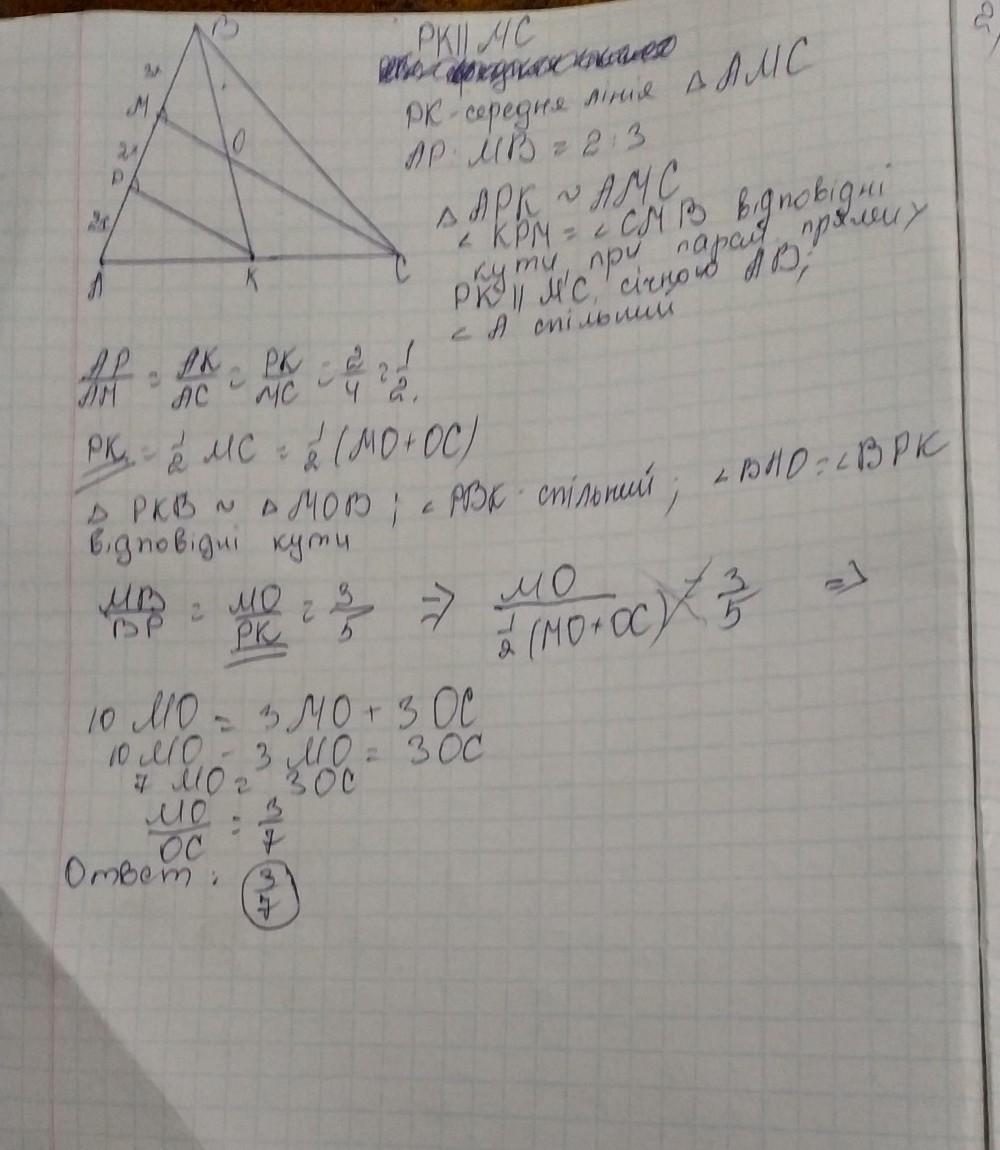 B
3x
M
2x
O
P
2x
A
K
C
2,
PK || MC
PK - середня лінія △ AMC
AP : MB = 2 : 3
△ APK ~ AMC
∠ KPM = ∠ CMB відповідні
кути, при парал. прямих
PK || MC, січною AB;
∠ A спільний
AP/AM = AK/AC = PK/MC = 2/4 = 1/2.
PK = 1/2 MC = 1/2 (MO + OC)
△ PKB ~ △ MOB ; ∠ PBK - спільний ; ∠ BMO = ∠ BPK
відповідні кути
MB/BP = MO/PK = 3/5 ⇒ MO / 1/2 (MO + OC) = 3/5 ⇒
10 MO = 3 MO + 3 OC
10 MO - 3 MO = 3 OC
7 MO = 3 OC
MO/OC = 3/7
Ответ : 3/7